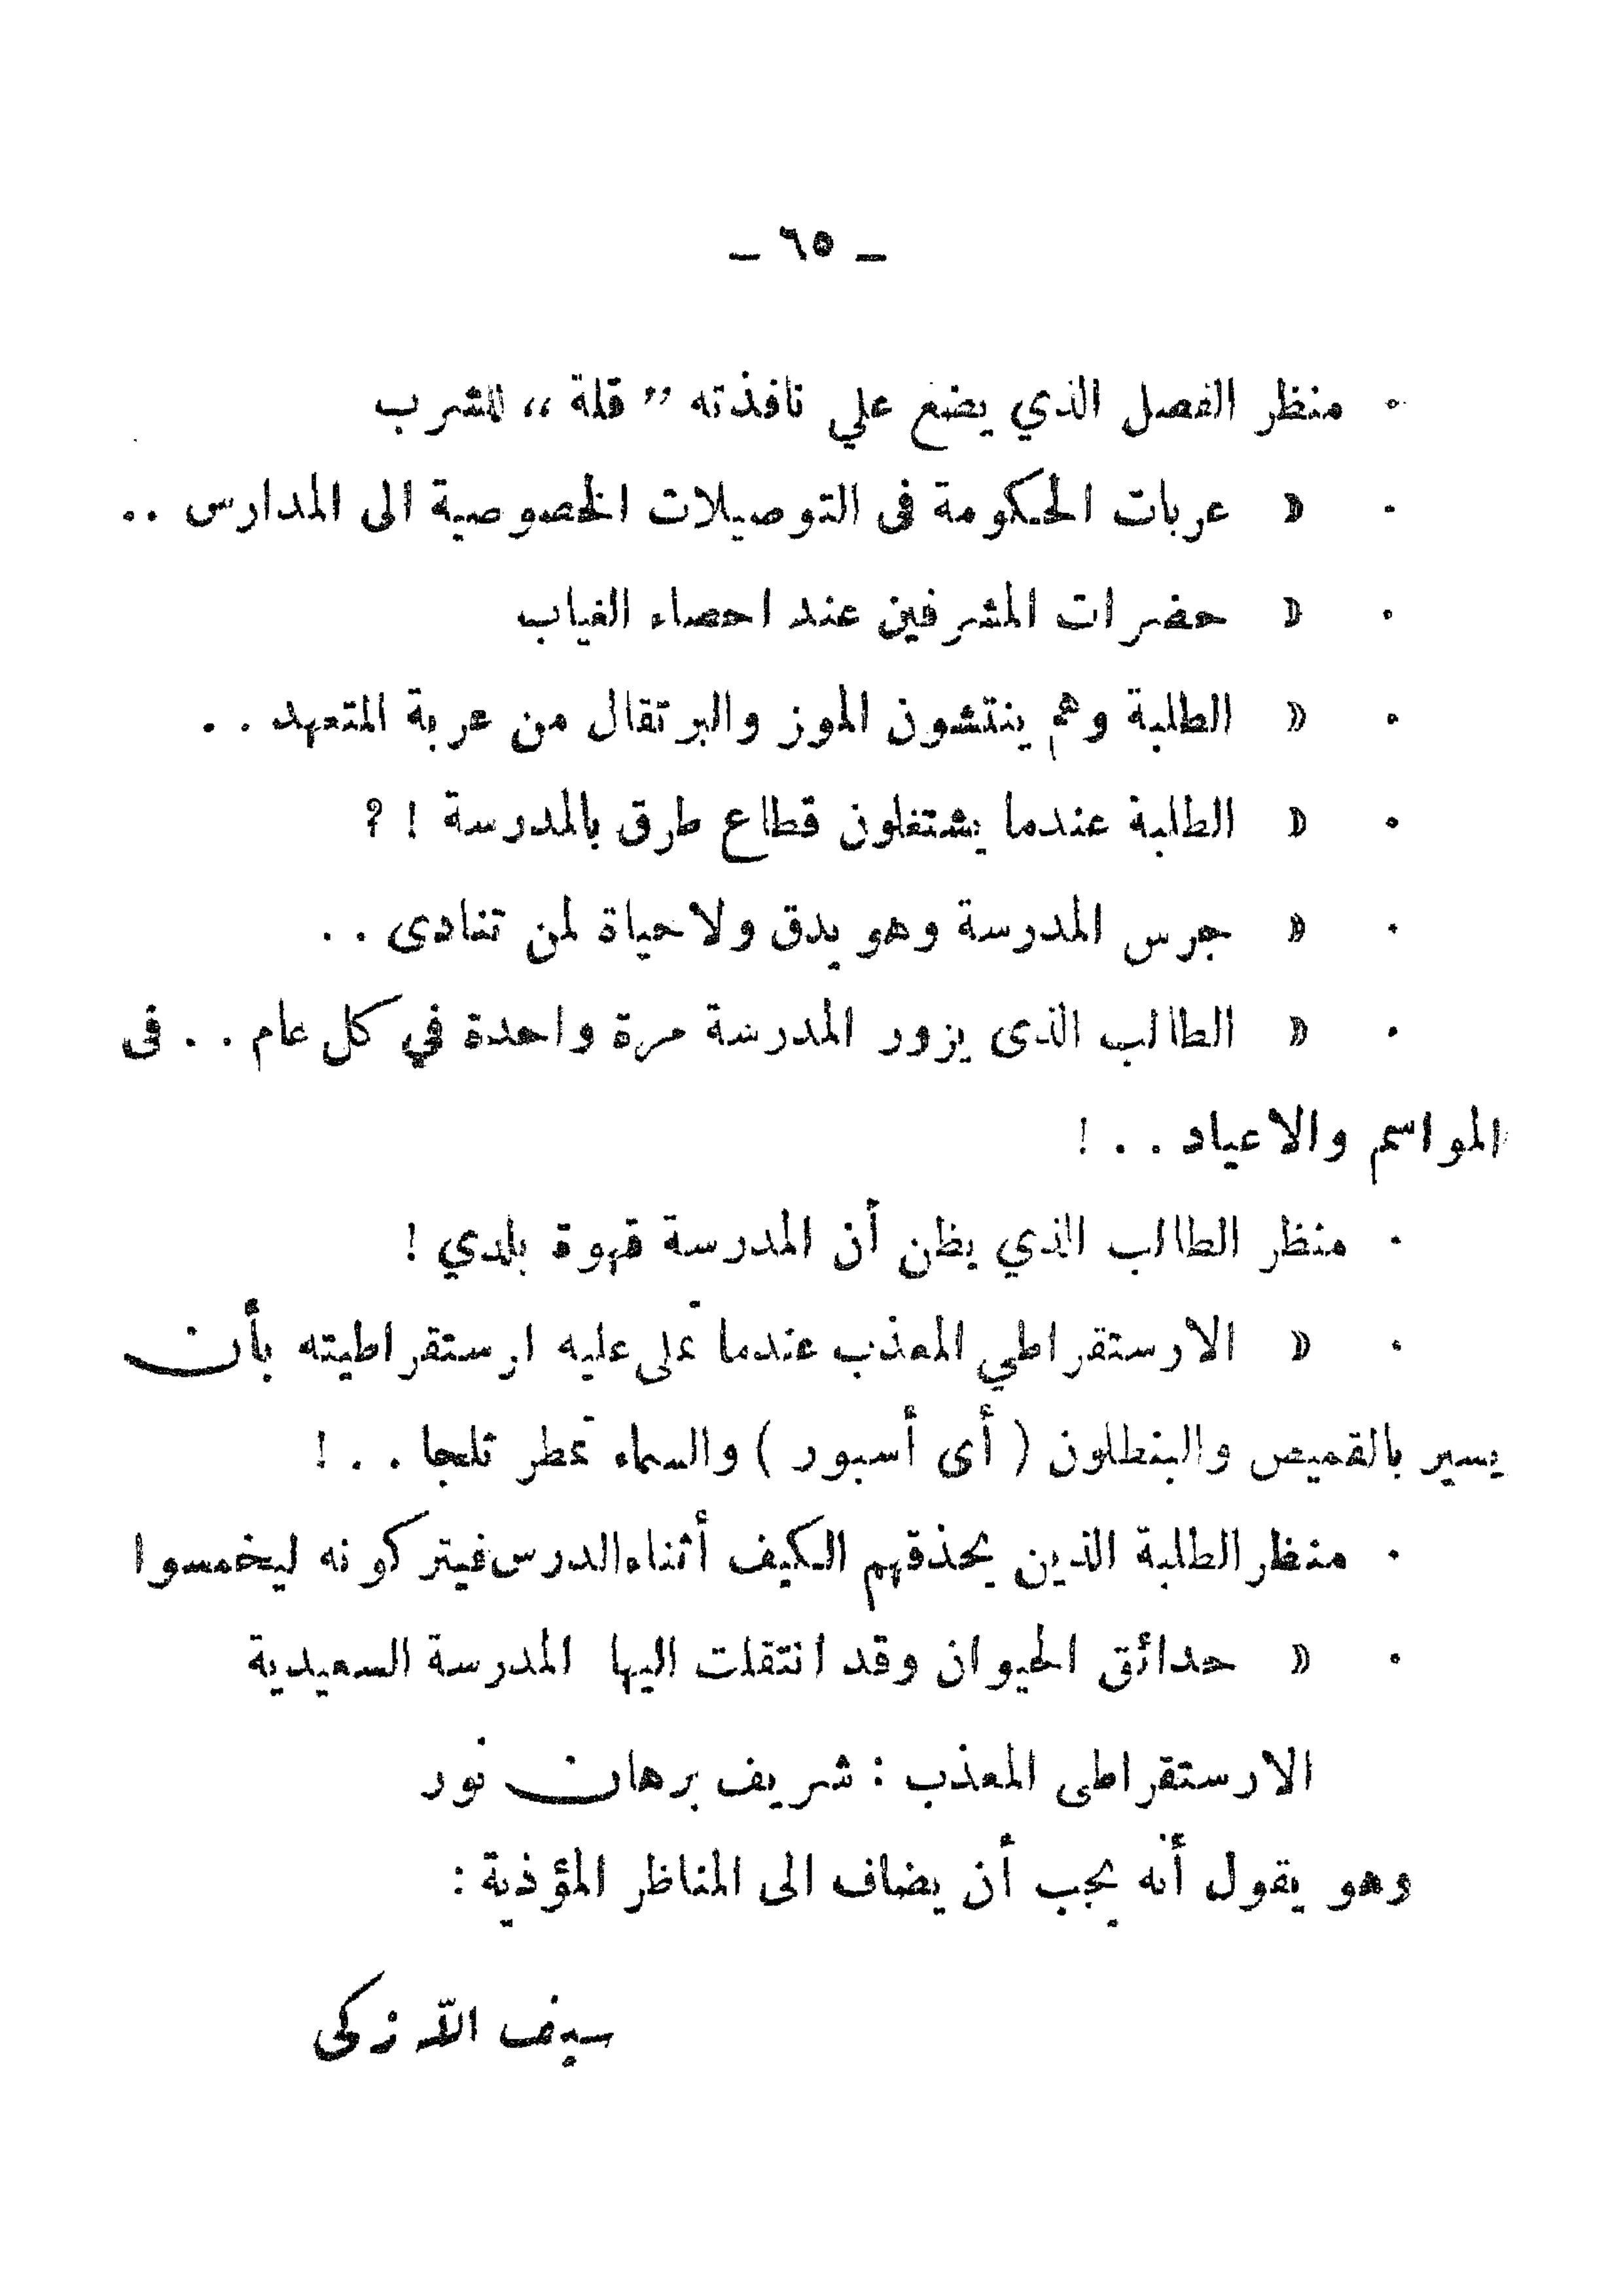 – ٦٥ –
· منظر الفصل الذي يضع علي نافذته ,, قلة ،، للشرب
· » عربات الحكومة فى التوصيلات الخصوصية الى المدارس ..
· » حضرات المشرفين عند احصاء الغياب
· » الطلبة وهم ينتشون الموز والبرتقال من عربة المتعهد ..
· » الطلبة عندما يشتغلون قطاع طرق بالمدرسة ! ?
· » جرس المدرسة وهو يدق ولا حياة لمن تنادى ..
· » الطالب الذى يزور المدرسة مرة واحدة في كل عام .. فى
المواسم والاعياد .. !
· منظر الطالب الذي يظن أن المدرسة قهوة بلدي !
· » الارستقراطي المعذب عندما تملى عليه ارستقراطيته بأن
يسير بالقميص والبنطلون ( أى أسبور ) والسماء تمطر ثلجا .. !
· منظر الطلبة الذين يحذقهم الكيف أثناء الدرس فيتركونه ليخمسوا
· » حدائق الحيوان وقد انتقلت اليها المدرسة السعيدية
الارستقراطى المعذب : شريف برهان نور
وهو يقول أنه يجب أن يضاف الى المناظر المؤذية :
سيف الله زكى